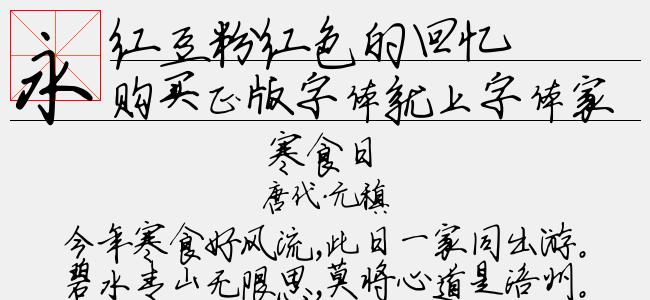 永
红豆粉红色的回忆
购买正版字体就上字体家
寒食日
唐代·元稹
今年寒食好风流,此日一家同出游。
碧水青山无限思,莫将心道是涪州。